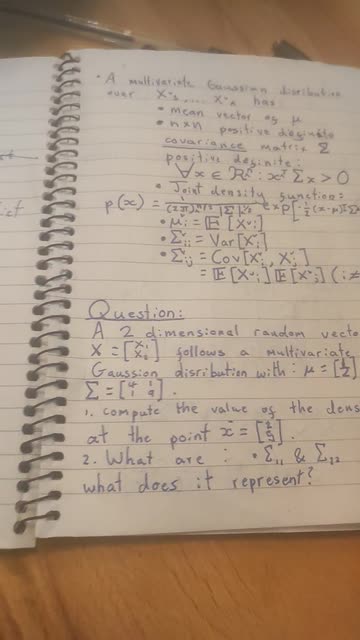 • A multivariate Gaussian disribution
over X₁, ... Xₙ has
• mean vector of μ
• n×n positive definite
covariance matrix Σ
positive definite:
∀x ∈ ℝⁿ : xᵀ Σ x > 0
• Joint density function:
p(x) = 1/((2π)^(n/2) |Σ|^(1/2)) exp[-½(x-μ)ᵀΣ
• μᵢ = 𝔼[Xᵢ]
• Σᵢᵢ = Var[Xᵢ]
• Σᵢⱼ = Cov[Xᵢ, Xⱼ]
= 𝔼[Xᵢ] 𝔼[Xⱼ] (i≠
Question:
A 2 dimensional random vecto
X = [X₁ X₂] follows a multivariate
Gaussion disribution with : μ = [1 2]
Σ = [4 1 1 9] .
1. compute the value of the dens
at the point x =
2. What are : • Σ₁₁ & Σ₂₂
what does it represent?